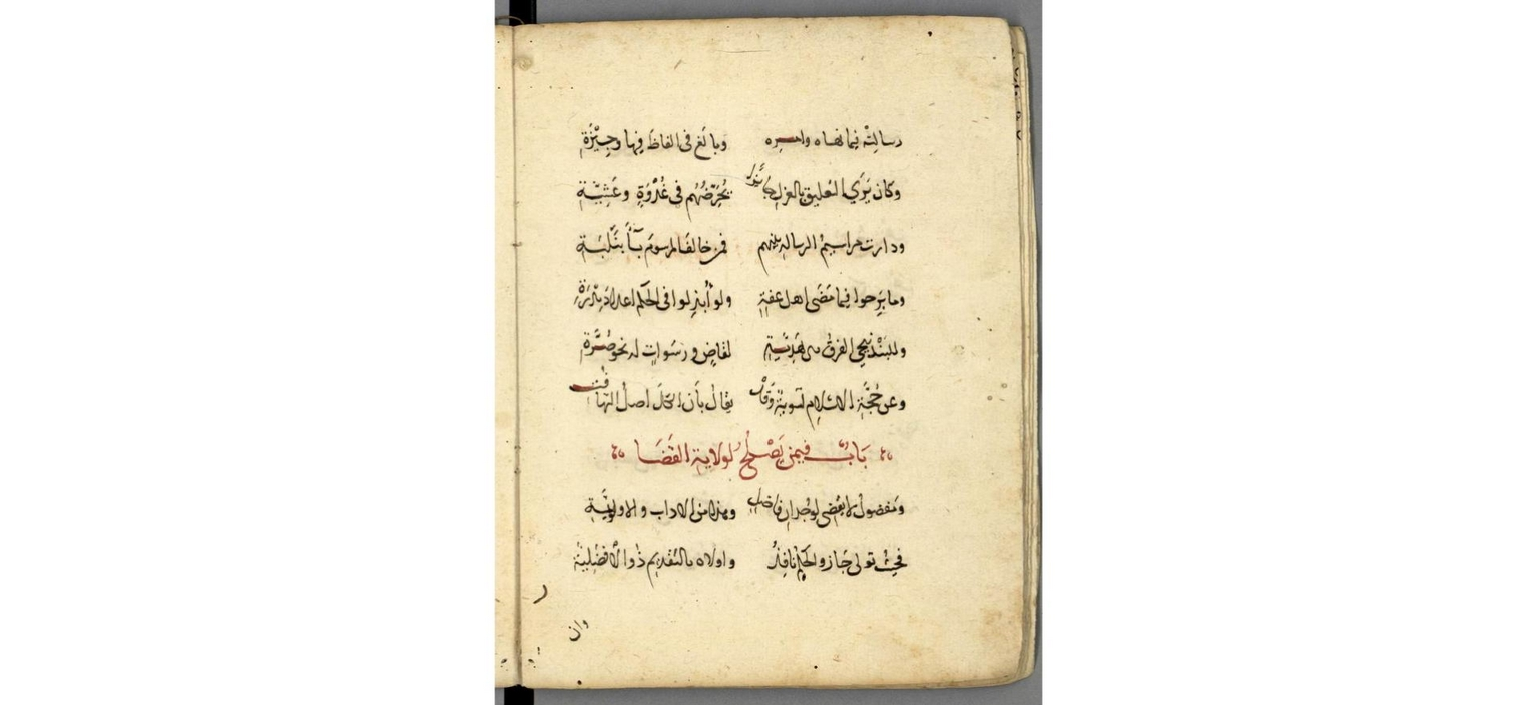 رسالته فيما نهاه وامره وبالغ في الفاظ فيها وجيزة
وكان يرى التعليق بالعزل يحرضهم في غدوة وعشية
ودارت مراسيم الرسالة بينهم فمن خالف المرسوم
وما برحوا فيما مضى اهل عفة ولو في الحكم
وللبندنيجي الفرق لقاض ورشوات له نحو صرة
وعن حجة الاسلام يقال بان الكل اصل
باب فيمن يصلح لولاية القضا
ومفضول لا يقضى لوجدان فاضل وهذا من الاداب والاولوية
فحيث تولى جاز والحكم نافذ واولاه بالتقديم ذو الافضلية
وان